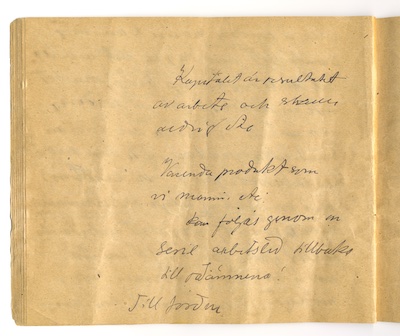 Kapitalet är resultatet
av arbete och
aldrig
Varenda produkt som
vi
kan följas genom en
serie arbetsled tillbaka
till råämnena!
Till jorden